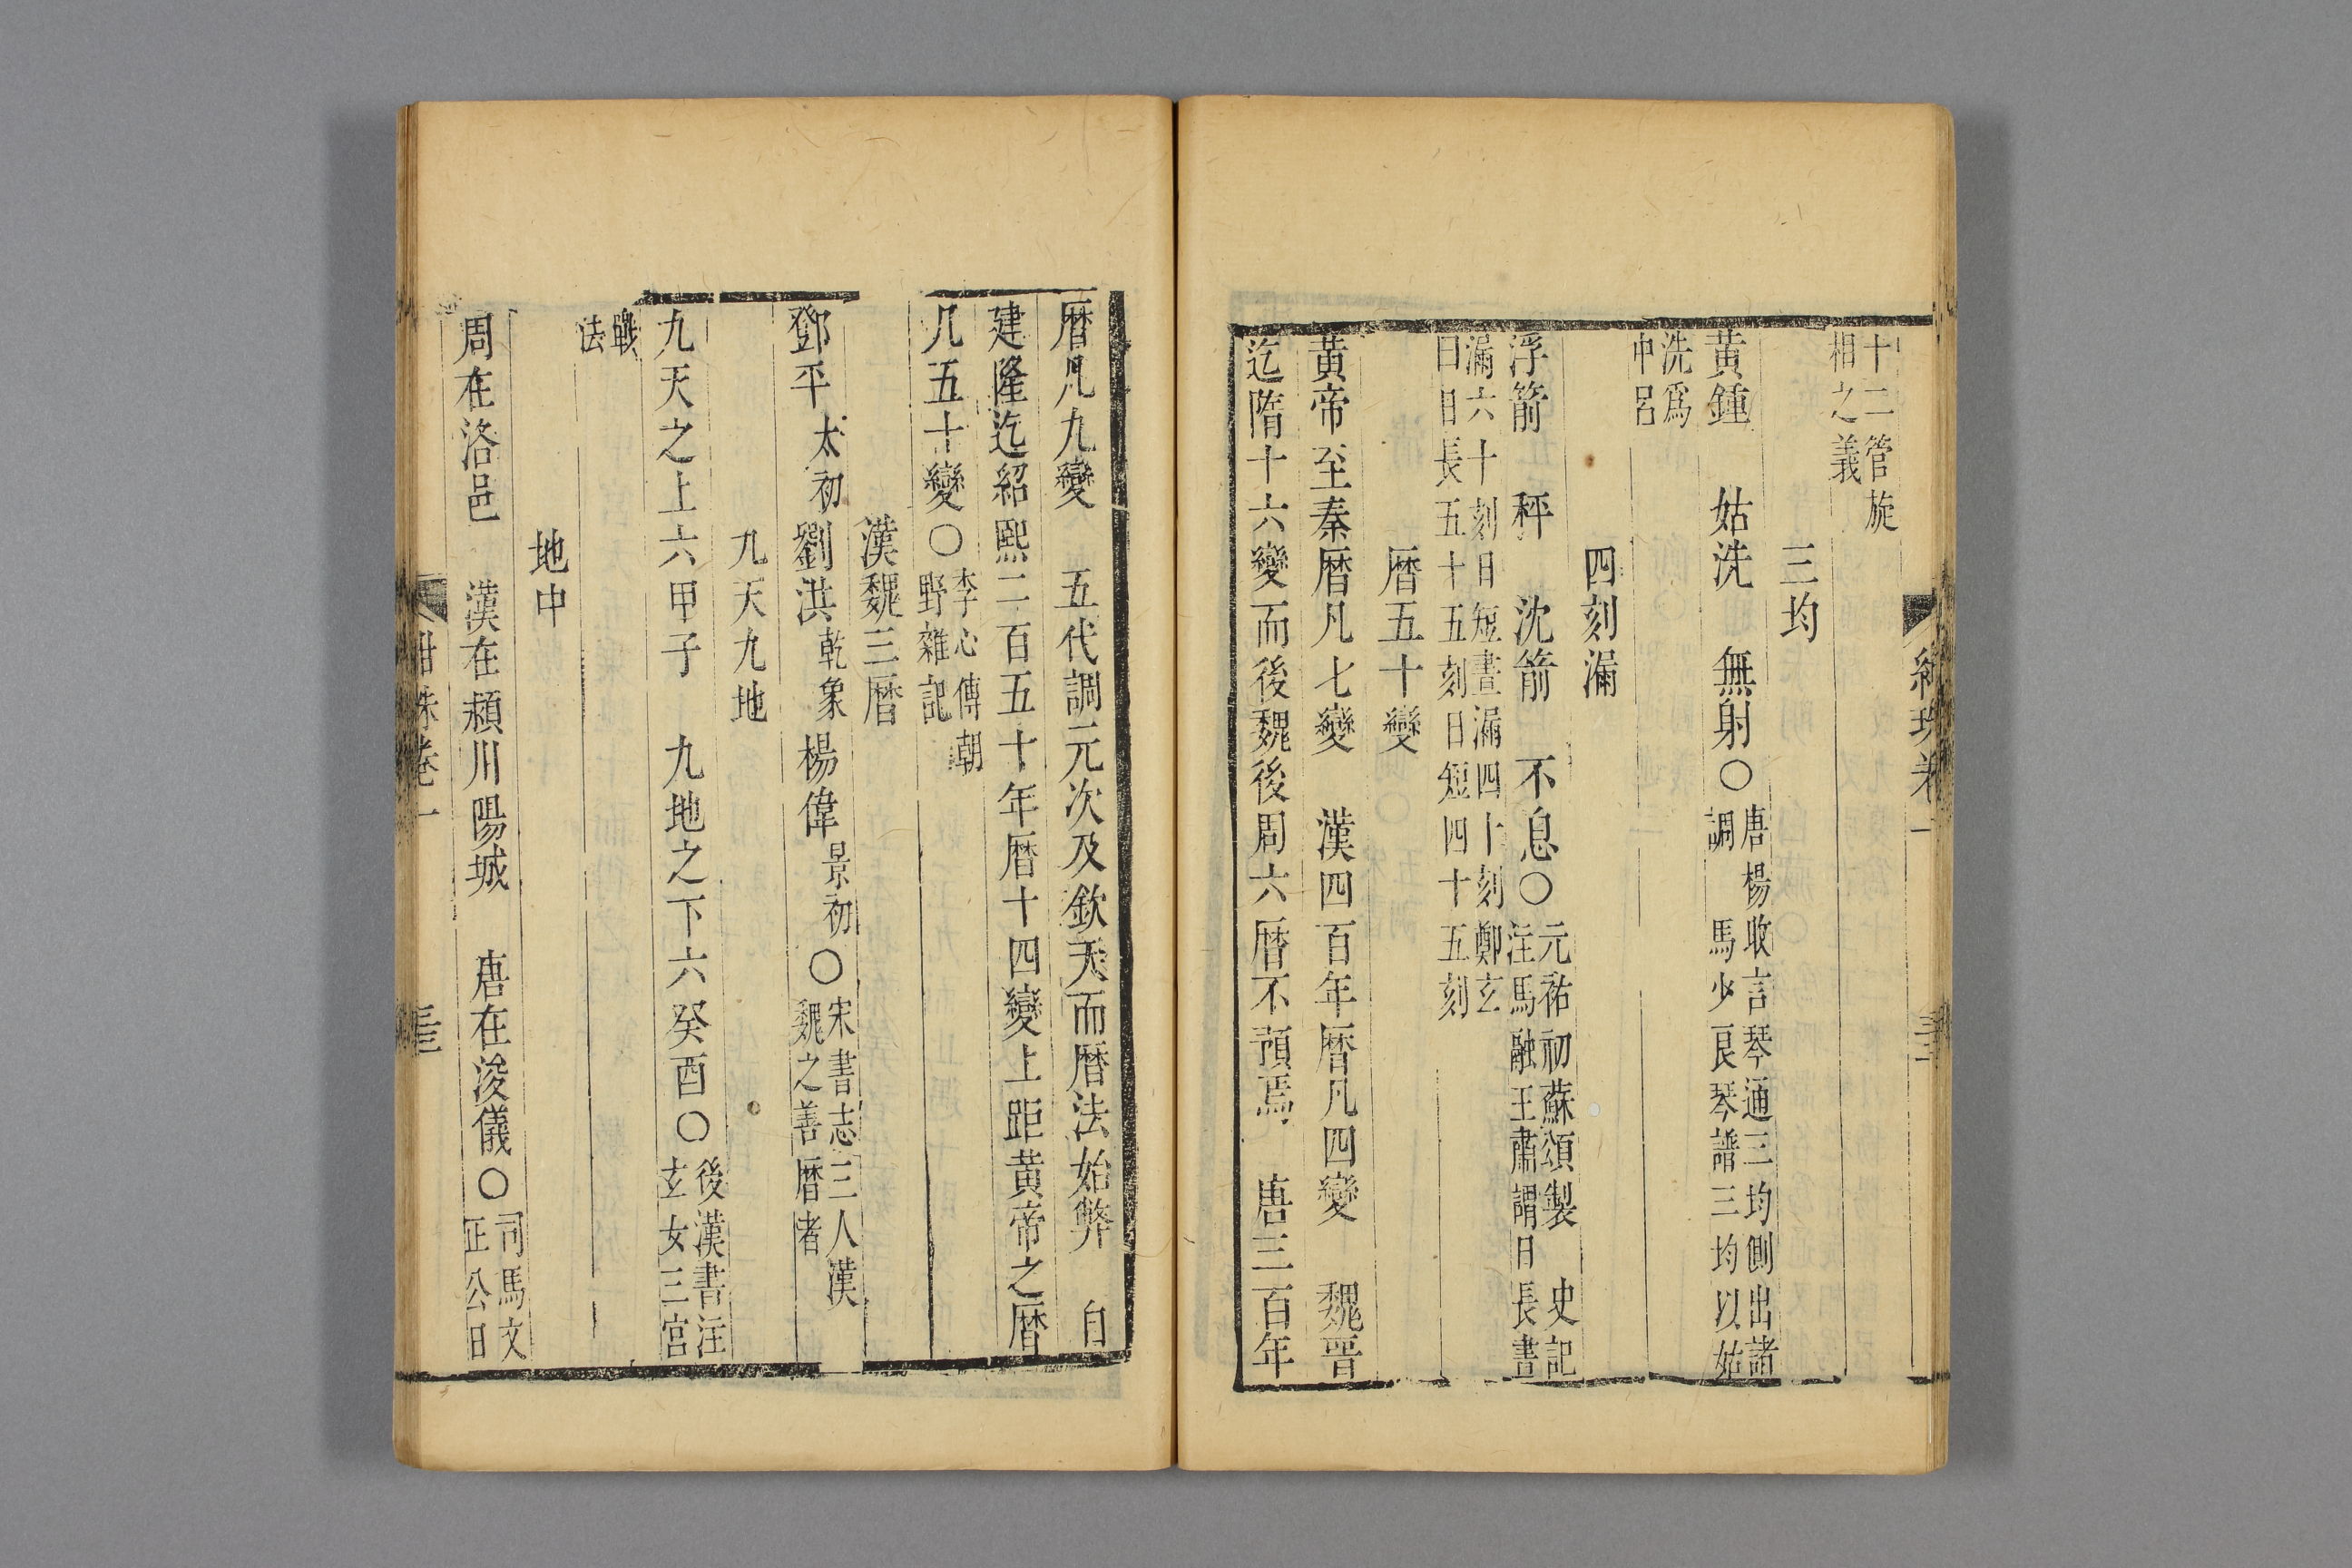 十二管旋
相之義
三均
黃鍾　姑洗　無射○唐楊收言琴通三均側出諸
調　馬少良琴譜三均以姑
洗爲
中呂
四刻漏
浮箭　秤　沈箭　不息○元祐初蘇頌製　史記
注馬融王肅謂日長晝
漏六十刻日短晝漏四十刻鄭玄
曰日長五十五刻日短四十五刻
曆五十變
黃帝至秦曆凡七變　漢四百年曆凡四變　魏晉
迄隋十六變而後魏後周六曆不預焉　唐三百年
曆凡九變　五代調元次及欽天而曆法始弊　自
建隆迄紹熙二百五十年曆十四變上距黃帝之曆
凡五十變○李心傳朝
野雜記
漢魏三曆
鄧平太初劉洪乾象楊偉景初○宋書志三人漢
魏之善曆者
九天九地
九天之上六甲子　九地之下六癸酉○後漢書注
玄女三宮
戰
法
地中
周在洛邑　漢在潁川陽城　唐在浚儀○司馬文
正公曰
紺珠卷一